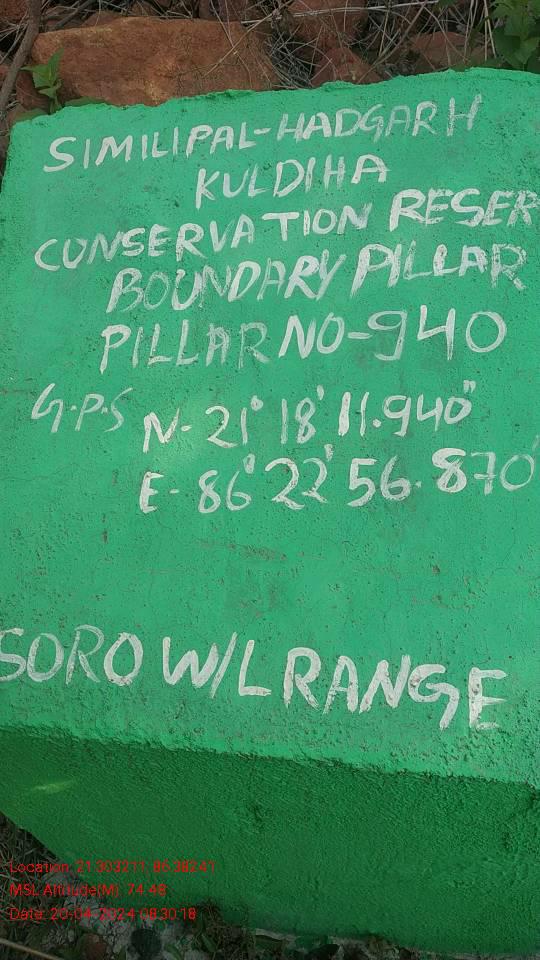 SIMILIPAL-HADGARH
KULDIHA
CONSERVATION RESER
BOUNDARY PILLAR
PILLAR NO-940
G.P.S
N- 21° 18' 11.940"
E- 86° 22' 56.870'
SORO W/L RANGE
Location: 21.303211, 86.38241
MSL Altitude(M): 74.48
Date: 20-04-2024 08:30:18